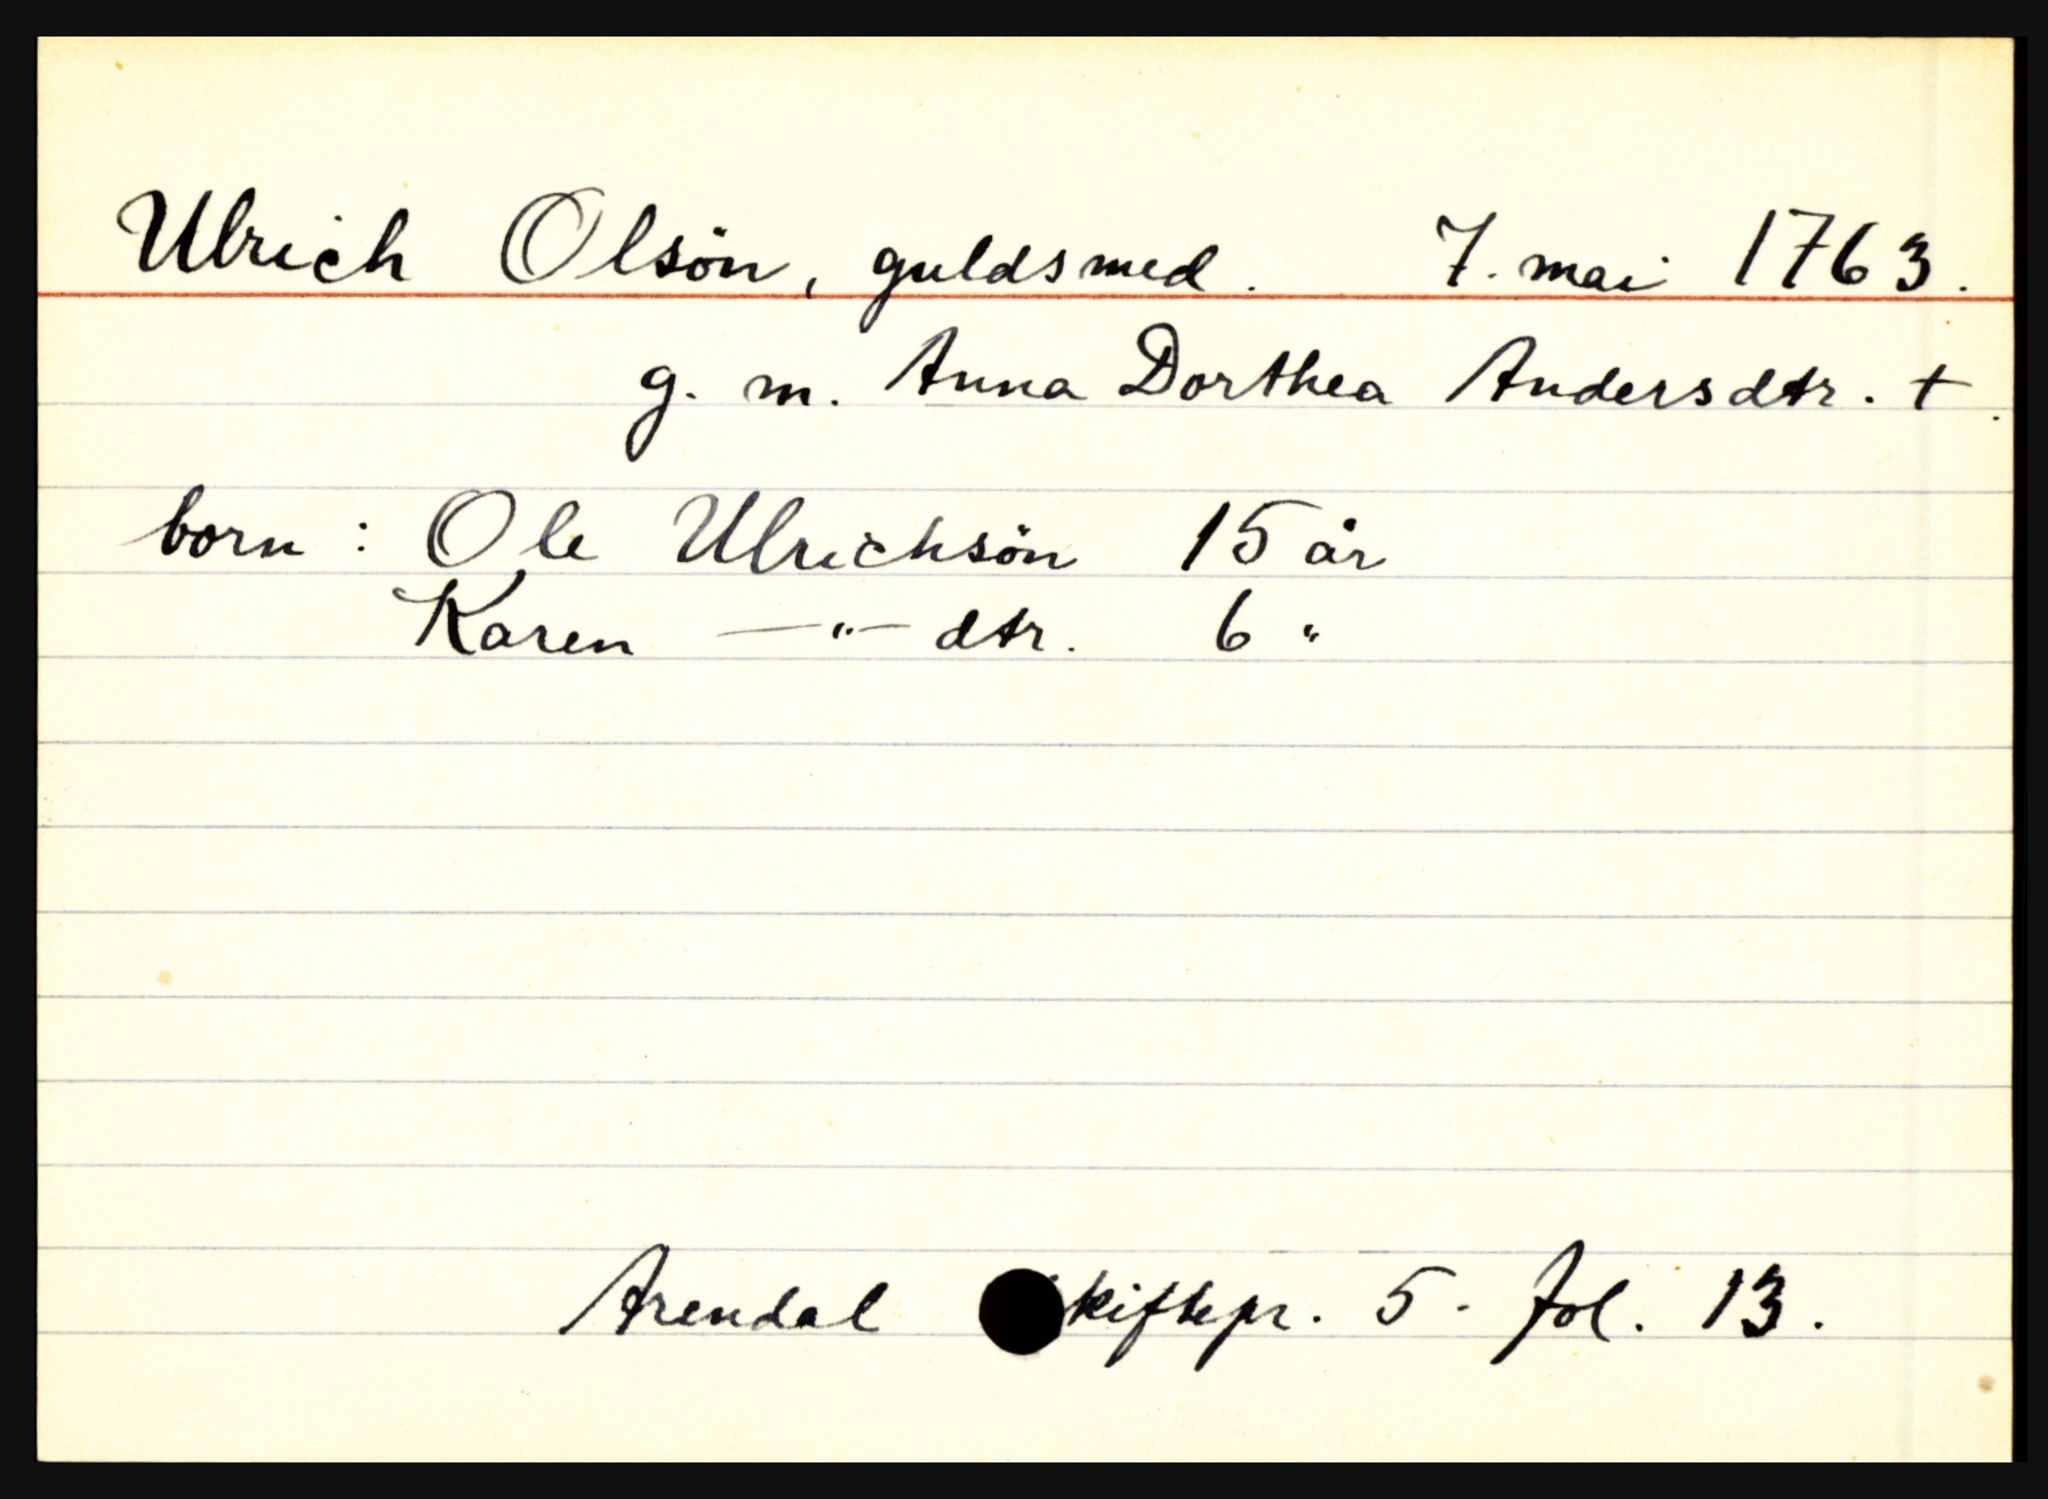 Ulrich Olsön, guldsmed. 7. mai 1763.
g. m. Anna Dorthea Andersdtr. +.
born: Ole Ulrichsön 15 år
Karen —"— dtr. 6 "
Arendal kiftepr. 5. fol. 13.